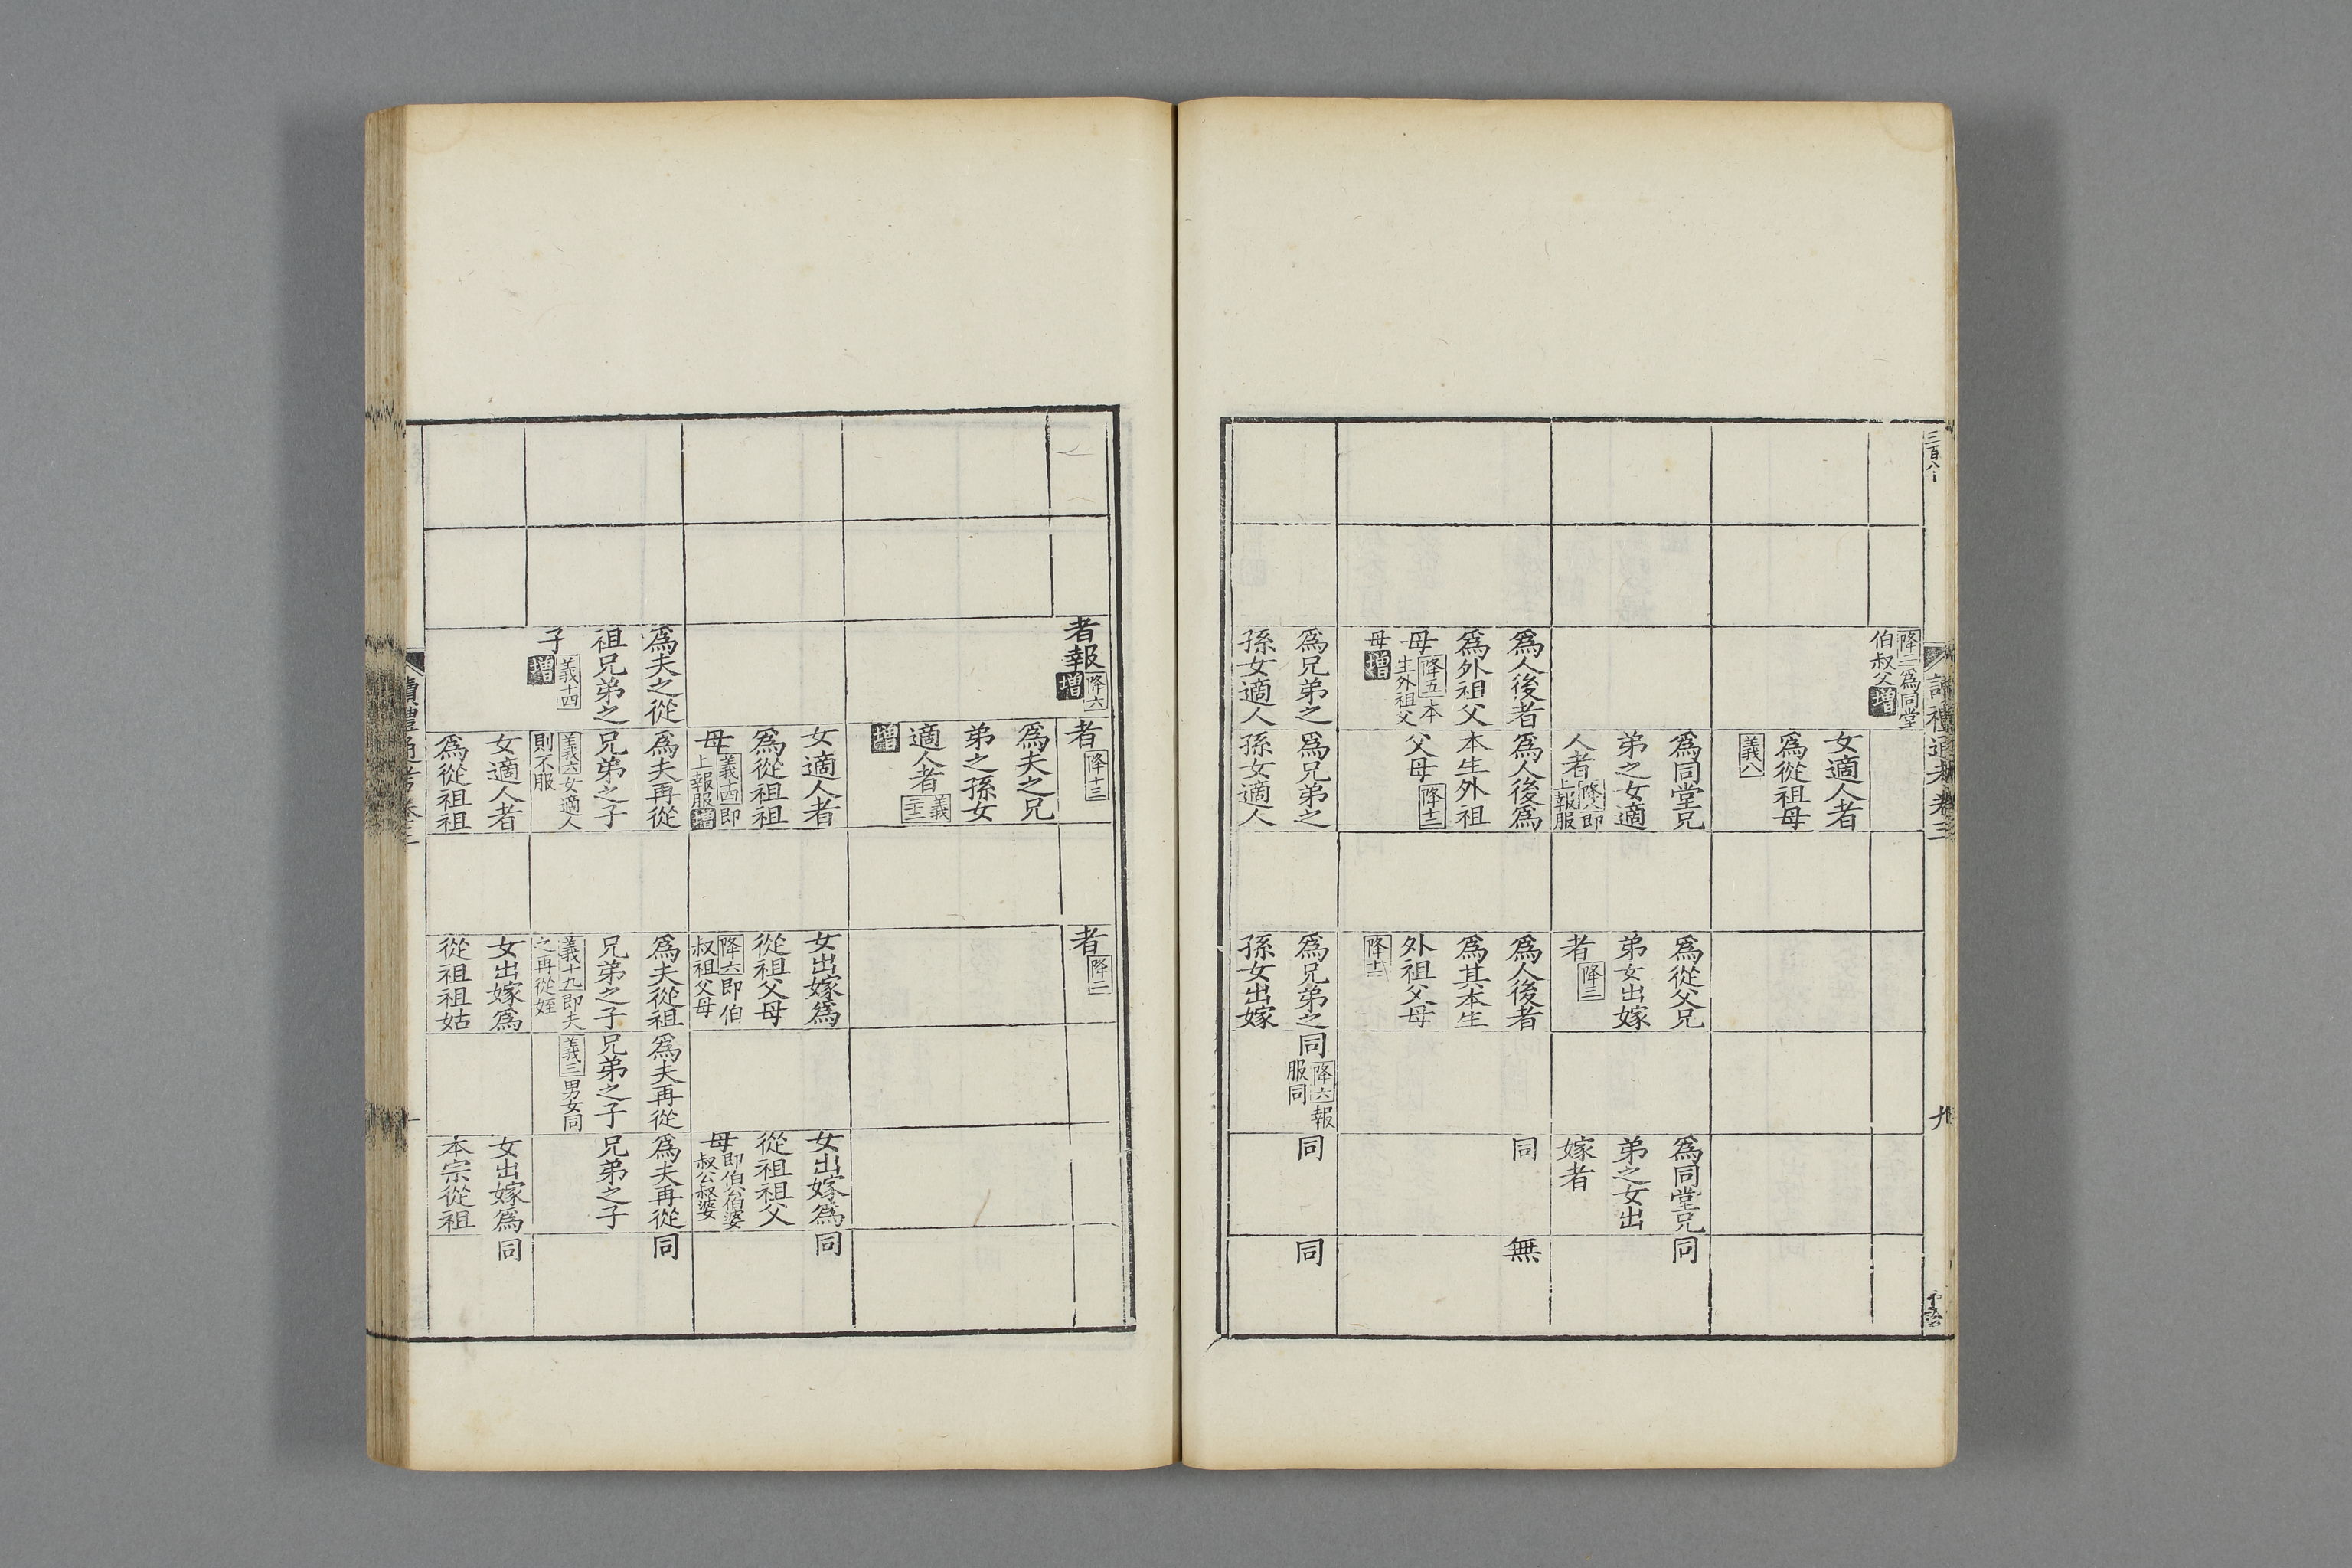 讀禮通考卷三
九
降二為同堂
伯叔父增
女適人者
為從祖母
義八
為同堂兄
弟之女適
人者降八即
上報服
為從父兄
弟女出嫁
者降三
為同堂兄
弟之女出
嫁者
同
為人後者
為外祖父
母降五本
生外祖父
母增
為人後為
本生外祖
父母降十三
為人後者
為其本生
外祖父母
同
無
為兄弟之
孫女適人
為兄弟之
孫女適人
為兄弟之
孫女出嫁
同降六報
服同
同
同
者報降六
增
者降十三
者降二
為夫之兄
弟之孫女
適人者義
二十三
增
女適人者
為從祖祖
母義十四即
上報服增
女出嫁為
從祖父母
降六即伯
叔祖父母
女出嫁為
從祖祖父
母即伯公伯婆
叔公叔婆
同
為夫之從
祖兄弟之
子義十四
增
為夫再從
兄弟之子
義六女適人
則不服
為夫從祖
兄弟之子
義十九即夫
之再從姪
為夫再從
兄弟之子
義三男女同
為夫再從
兄弟之子
同
女適人者
為從祖祖
女出嫁為
從祖祖姑
女出嫁為
本宗從祖
同
讀禮通考卷三